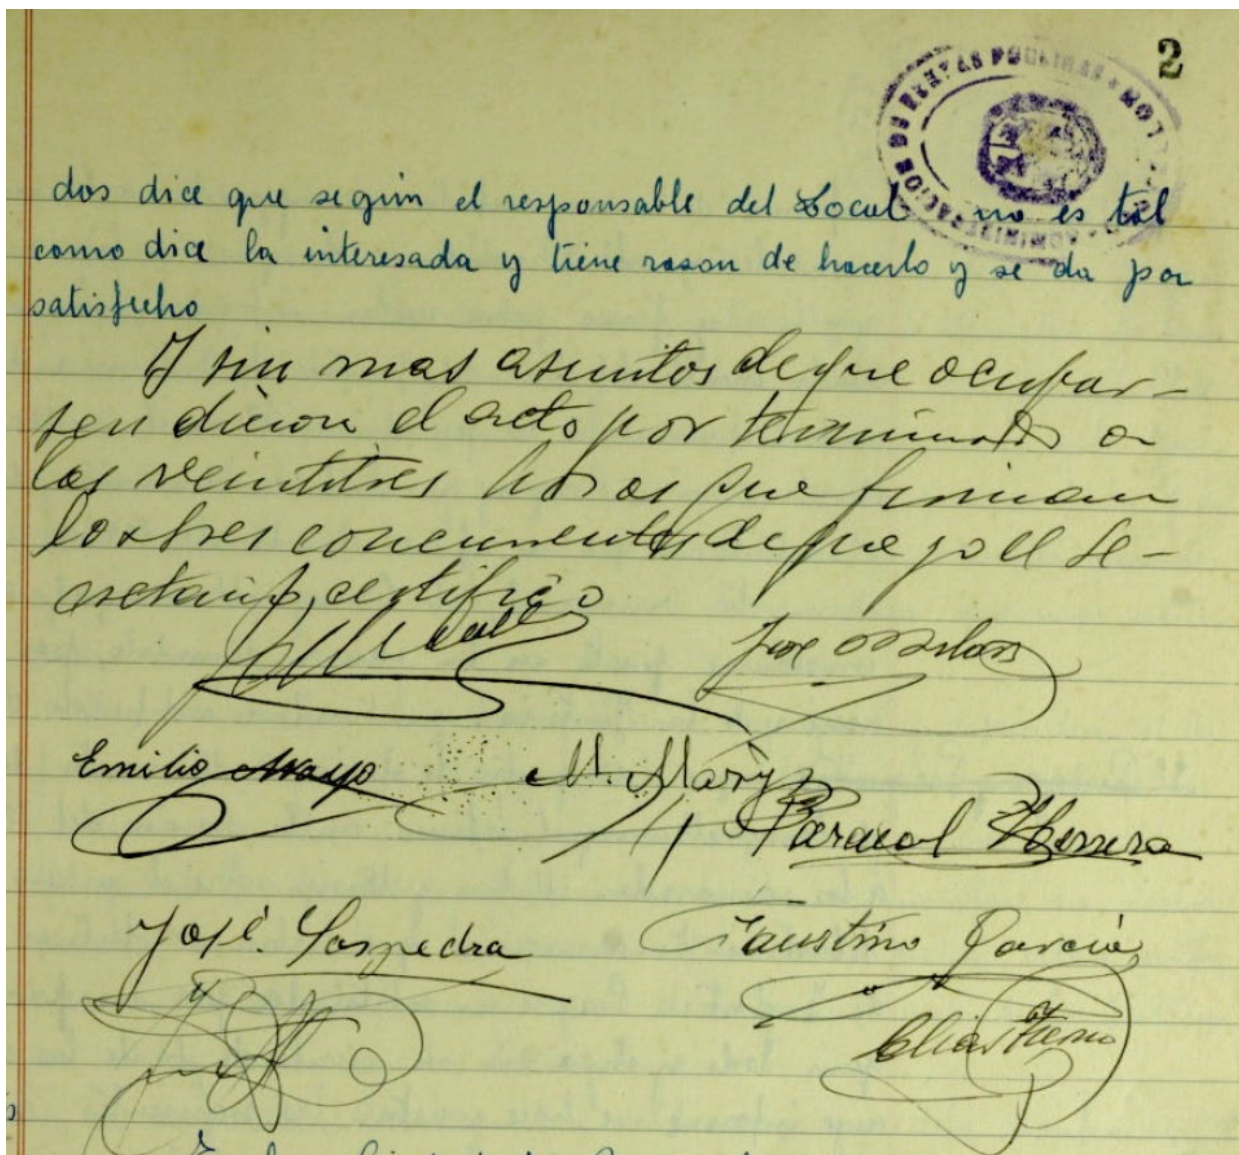 2
ADMINISTRACION DE RENTAS PUBLICAS
dos dice que segun el responsable del Local no es tal
como dice la interesada y tiene rason de hacerlo y se da por
satisfecho
Y sin mas asuntos de que ocupar-
sen dieron el acto por terminado a
las veintitres horas que firman
los tres concurrentes de que yo el Se-
cretario, certifico
José
Emilio Arayo
M. Marí
Pascual Herrera
José. Sospedra
Faustino García
Elias